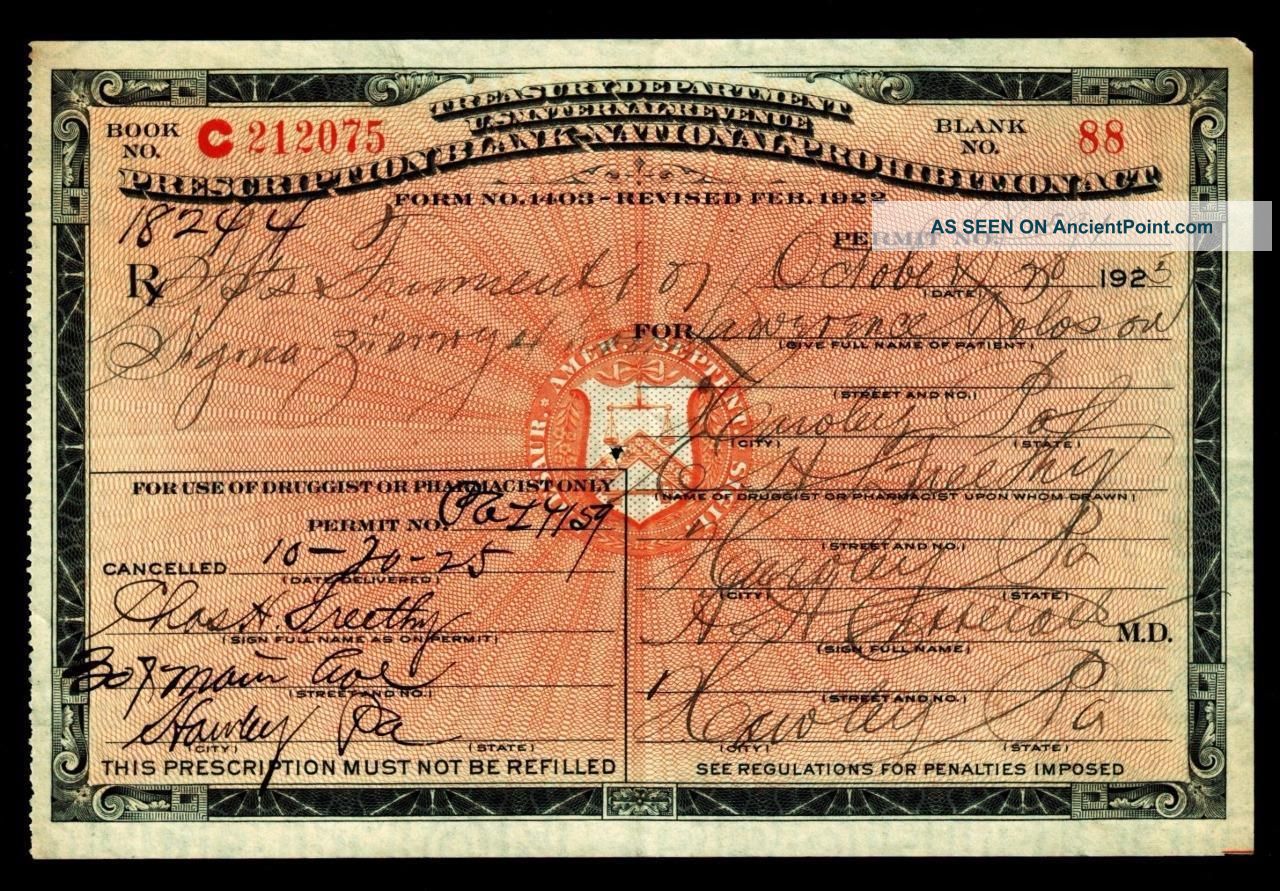 TREASURY DEPARTMENT
U.S. INTERNAL REVENUE
PRESCRIPTION BLANK-NATIONAL PROHIBITION ACT
BOOK NO. C 212075
BLANK NO. 88
FORM NO. 1403 - REVISED FEB. 1922
AS SEEN ON AncientPoint.com
18244
PERMIT NO.
Rx Frumenti
October 20 1925
(DATE)
FOR Lawrence
(GIVE FULL NAME OF PATIENT)
(STREET AND NO.)
Hawley Pa
(CITY) (STATE)
THESAUR. AMER. SEPTENT. SIGIL.
C H Freethy
(NAME OF DRUGGIST OR PHARMACIST UPON WHOM DRAWN)
(STREET AND NO.)
Hawley Pa
(CITY) (STATE)
M.D.
(SIGN FULL NAME)
(STREET AND NO.)
Hawley Pa
(CITY) (STATE)
SEE REGULATIONS FOR PENALTIES IMPOSED
FOR USE OF DRUGGIST OR PHARMACIST ONLY
PERMIT NO. Pa
CANCELLED 10-20-25
(DATE DELIVERED)
Chas H. Freethy
(SIGN FULL NAME AS ON PERMIT)
307 Main Ave
(STREET AND NO.)
Hawley Pa
(CITY) (STATE)
THIS PRESCRIPTION MUST NOT BE REFILLED